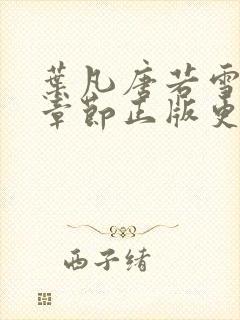 葉凡唐若雪
章節正版更
西子緒